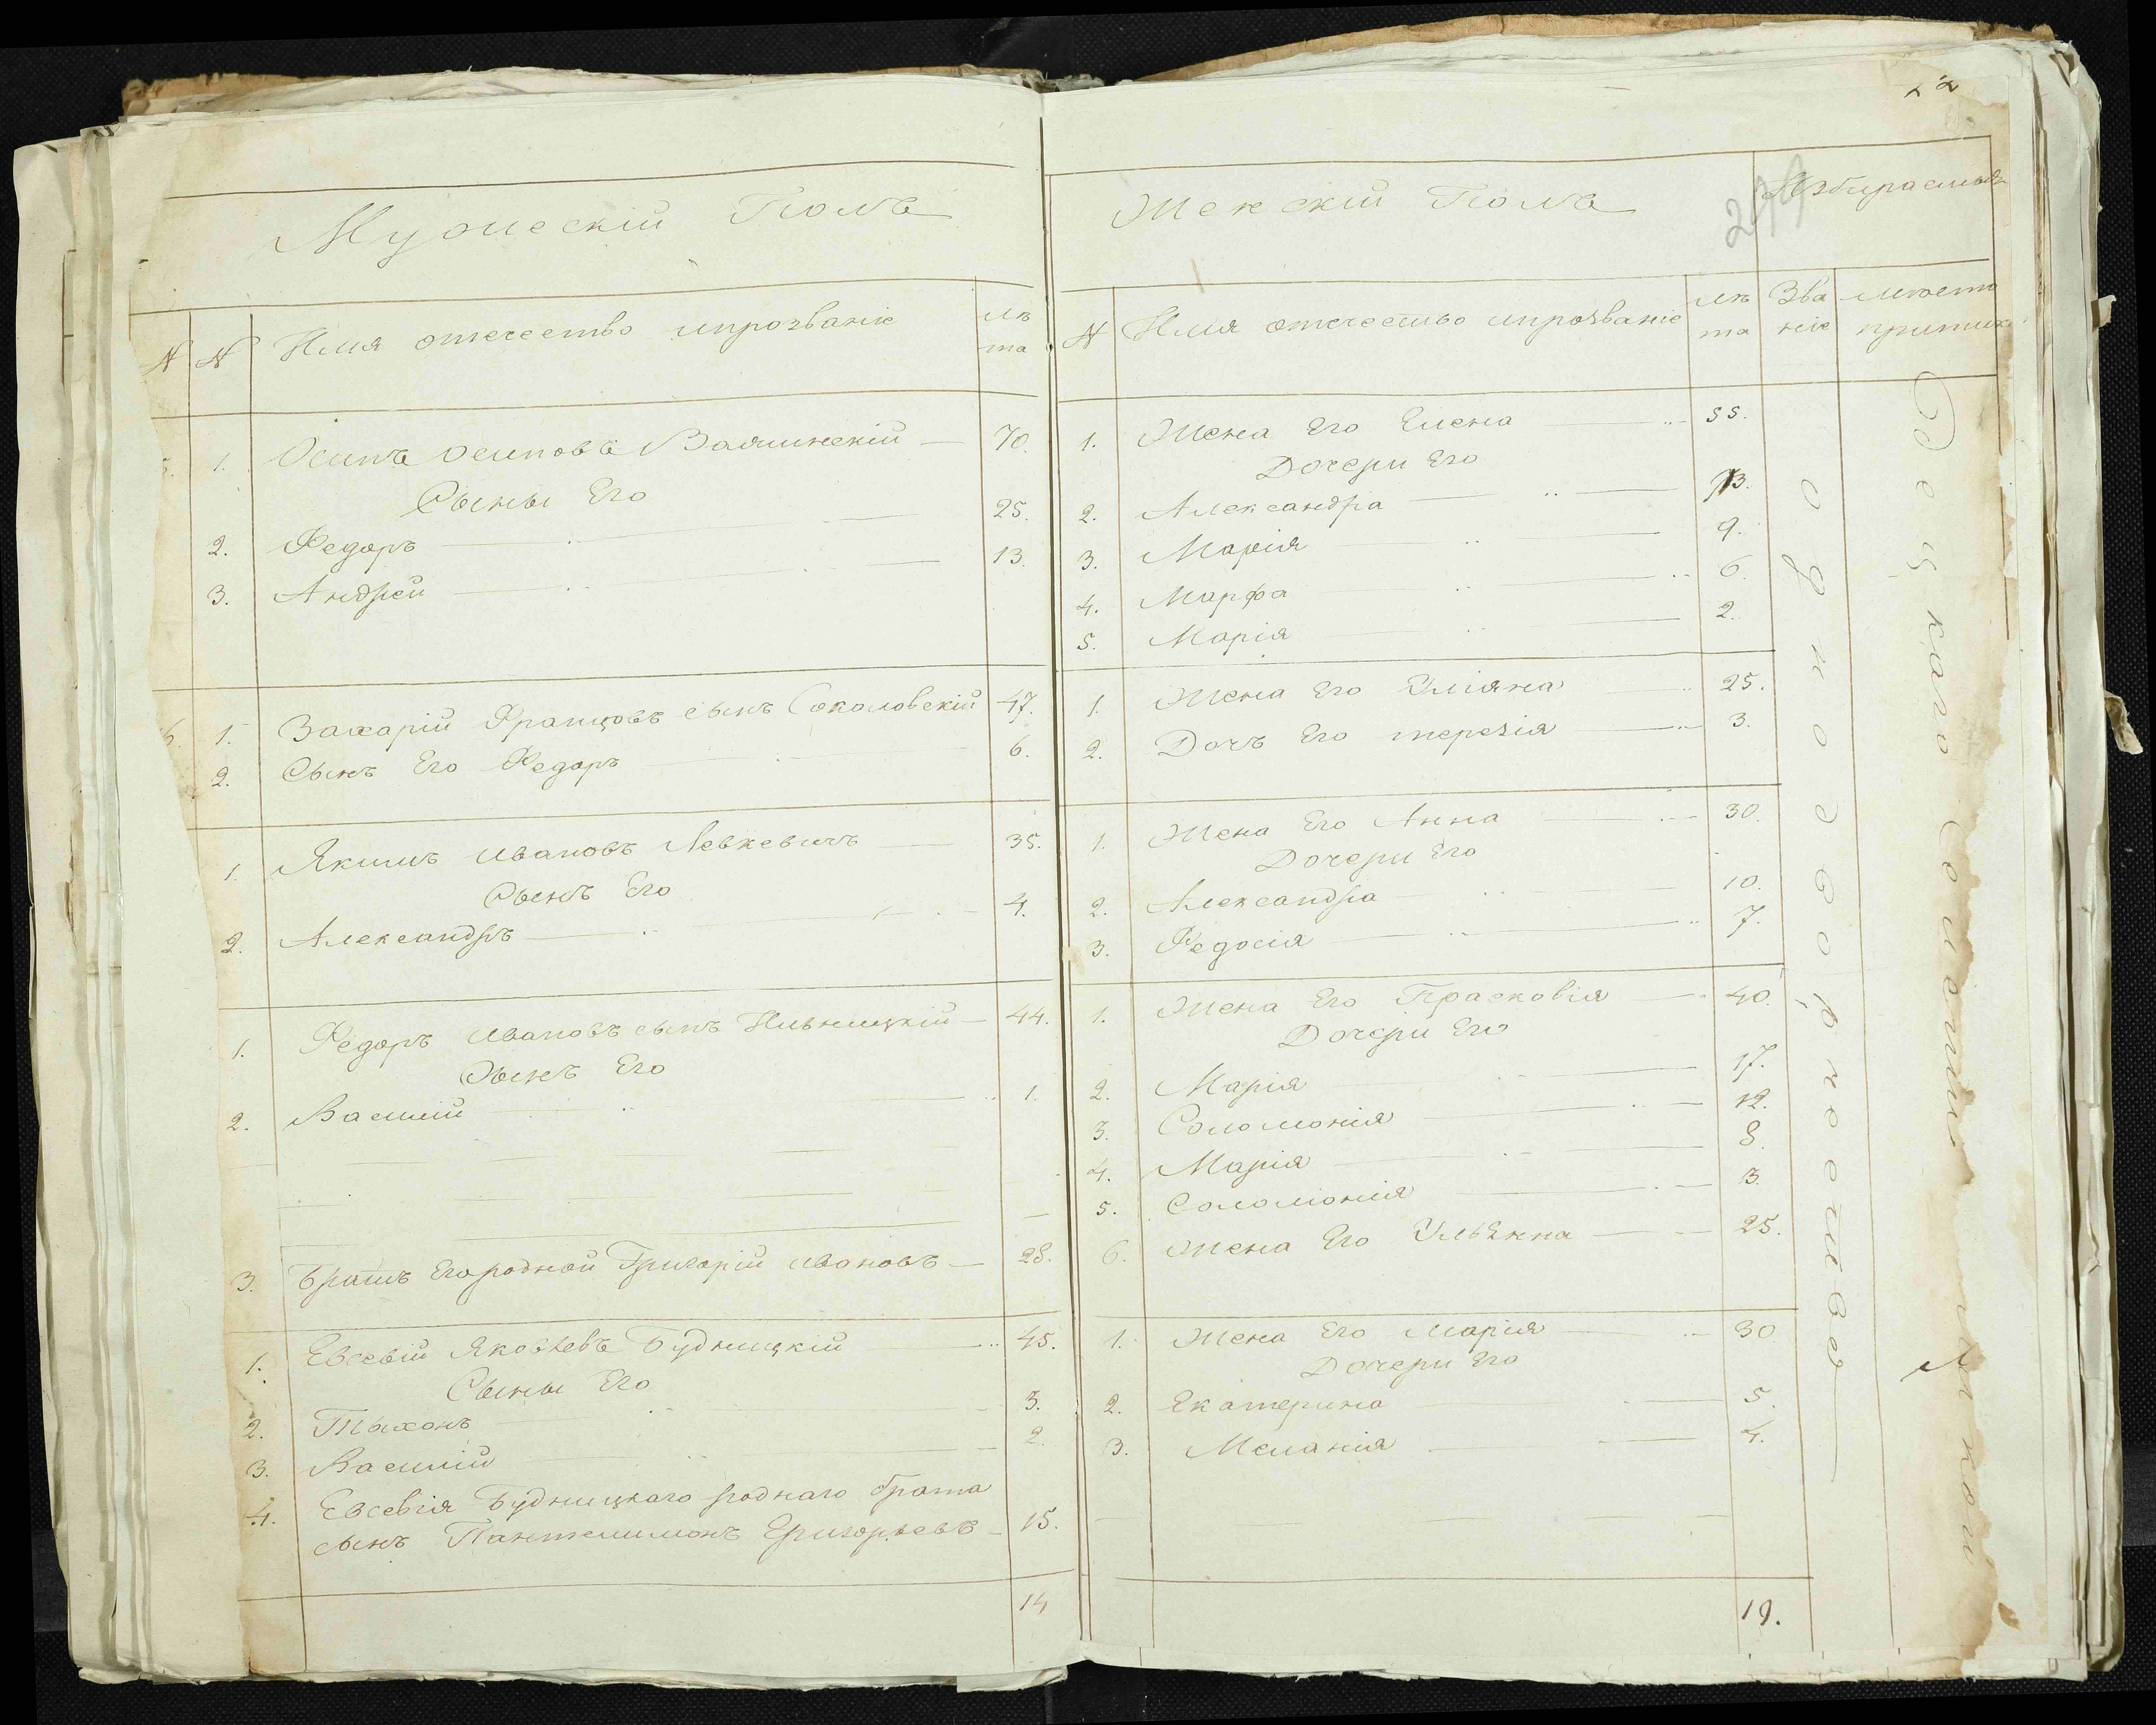 Мужескій Полъ
N N Имя отечество ипрозваніе лѣ
та
1. Осипъ Осиповъ — 70.
Сыны Его
2. Федоръ — 25.
3. Андрей — 13.
6. 1. Захарій Францовъ сынъ Соколовскій 47.
2. Сынъ Его Федоръ 6.
1. Якимъ Ивановъ Левкевичъ — 35.
Сынъ Его
2. Александръ — 4.
1. Федоръ Ивановъ сынъ — 44.
Сынъ Его
2. Василій 1.
3. Братъ Егородной Григорій Ивановъ — 28.
1. Евсевій Яковлевъ Будницкій 45.
Сыны Его
2. Тыхонъ 3.
3. Василій 2.
4. Евсевія Будницкаго роднаго брата
сынъ Пантелимонъ Григорьевъ — 15.
14
22
Женскій Полъ
N Имя отечество ипрозваніе лѣ
та Зва
ніе
1. Жена Его Елена — 55.
Дочери Его
2. Александра — 13.
3. Марія — 9.
4. Марфа — 6.
5. Марія — 2.
1. Жена Его Уліяна 25.
2. Дочъ Его терезія — 3.
1. Жена Его Анна — 30.
Дочери Его
2. Александра — 10.
3. Федосія — 7.
1. Жена Его Прасковія — 40.
Дочери Его
2. Марія — 17.
3. Соломонія — 12.
4. Марія — 8.
5. Соломонія — 3.
6. Жена Его Ульянна — 25.
1. Жена Его Марія — 30
Дочери Его
2. Екатерина — 5.
3. Меланія — 4.
19.